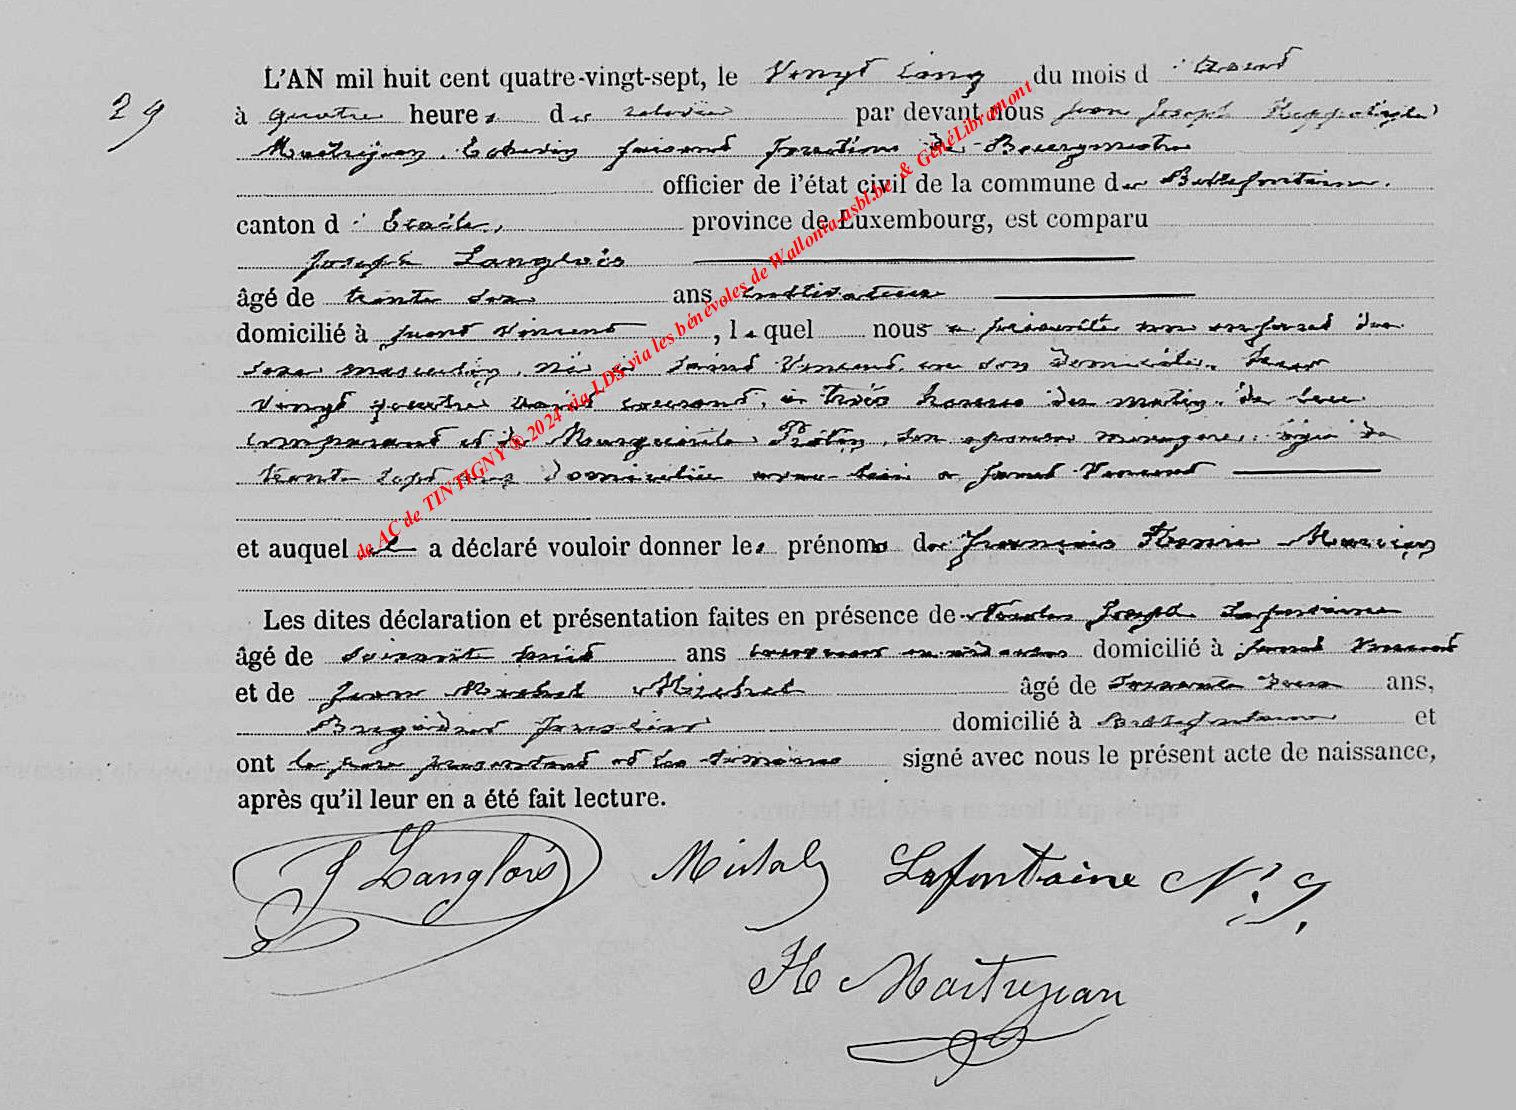 29
L'AN mil huit cent quatre-vingt-sept, le Vingt cinq du mois d'Aout
à quatre heures de relevée par devant nous Jean Joseph Hyppolyte
Maitrejean, Echevin faisant fonctions de Bourgmestre
officier de l'état civil de la commune de Bellefontaine,
canton d'Etalle, province de Luxembourg, est comparu
Joseph Langlois
âgé de trente six ans cultivateur
domicilié à Saint Vincent, lequel nous a présenté un enfant du
sexe masculin, né à Saint Vincent, en son domicile,
vingt quatre aout courant, à trois heures du matin, de lui
comparant et de Marguerite, son épouse, menagere, agée de
trente sept ans domiciliée avec lui a Saint Vincent
et auquel il a déclaré vouloir donner les prénoms de François Henri
Les dites déclaration et présentation faites en présence de Nicolas Joseph Lafontaine
âgé de soixante huit ans domicilié à Saint Vincent
et de Jean Michel Michel âgé de soixante deux ans,
Brigadier forestier domicilié à Bellefontaine et
ont le pere presentant et les témoins signé avec nous le présent acte de naissance,
après qu'il leur en a été fait lecture.
J Langlois Lafontaine N. J.
H Maitrejean
de AC de TINTIGNY © 2024 via LDS via les bénévoles de Wallonia-asbl.be & GénéLibramont